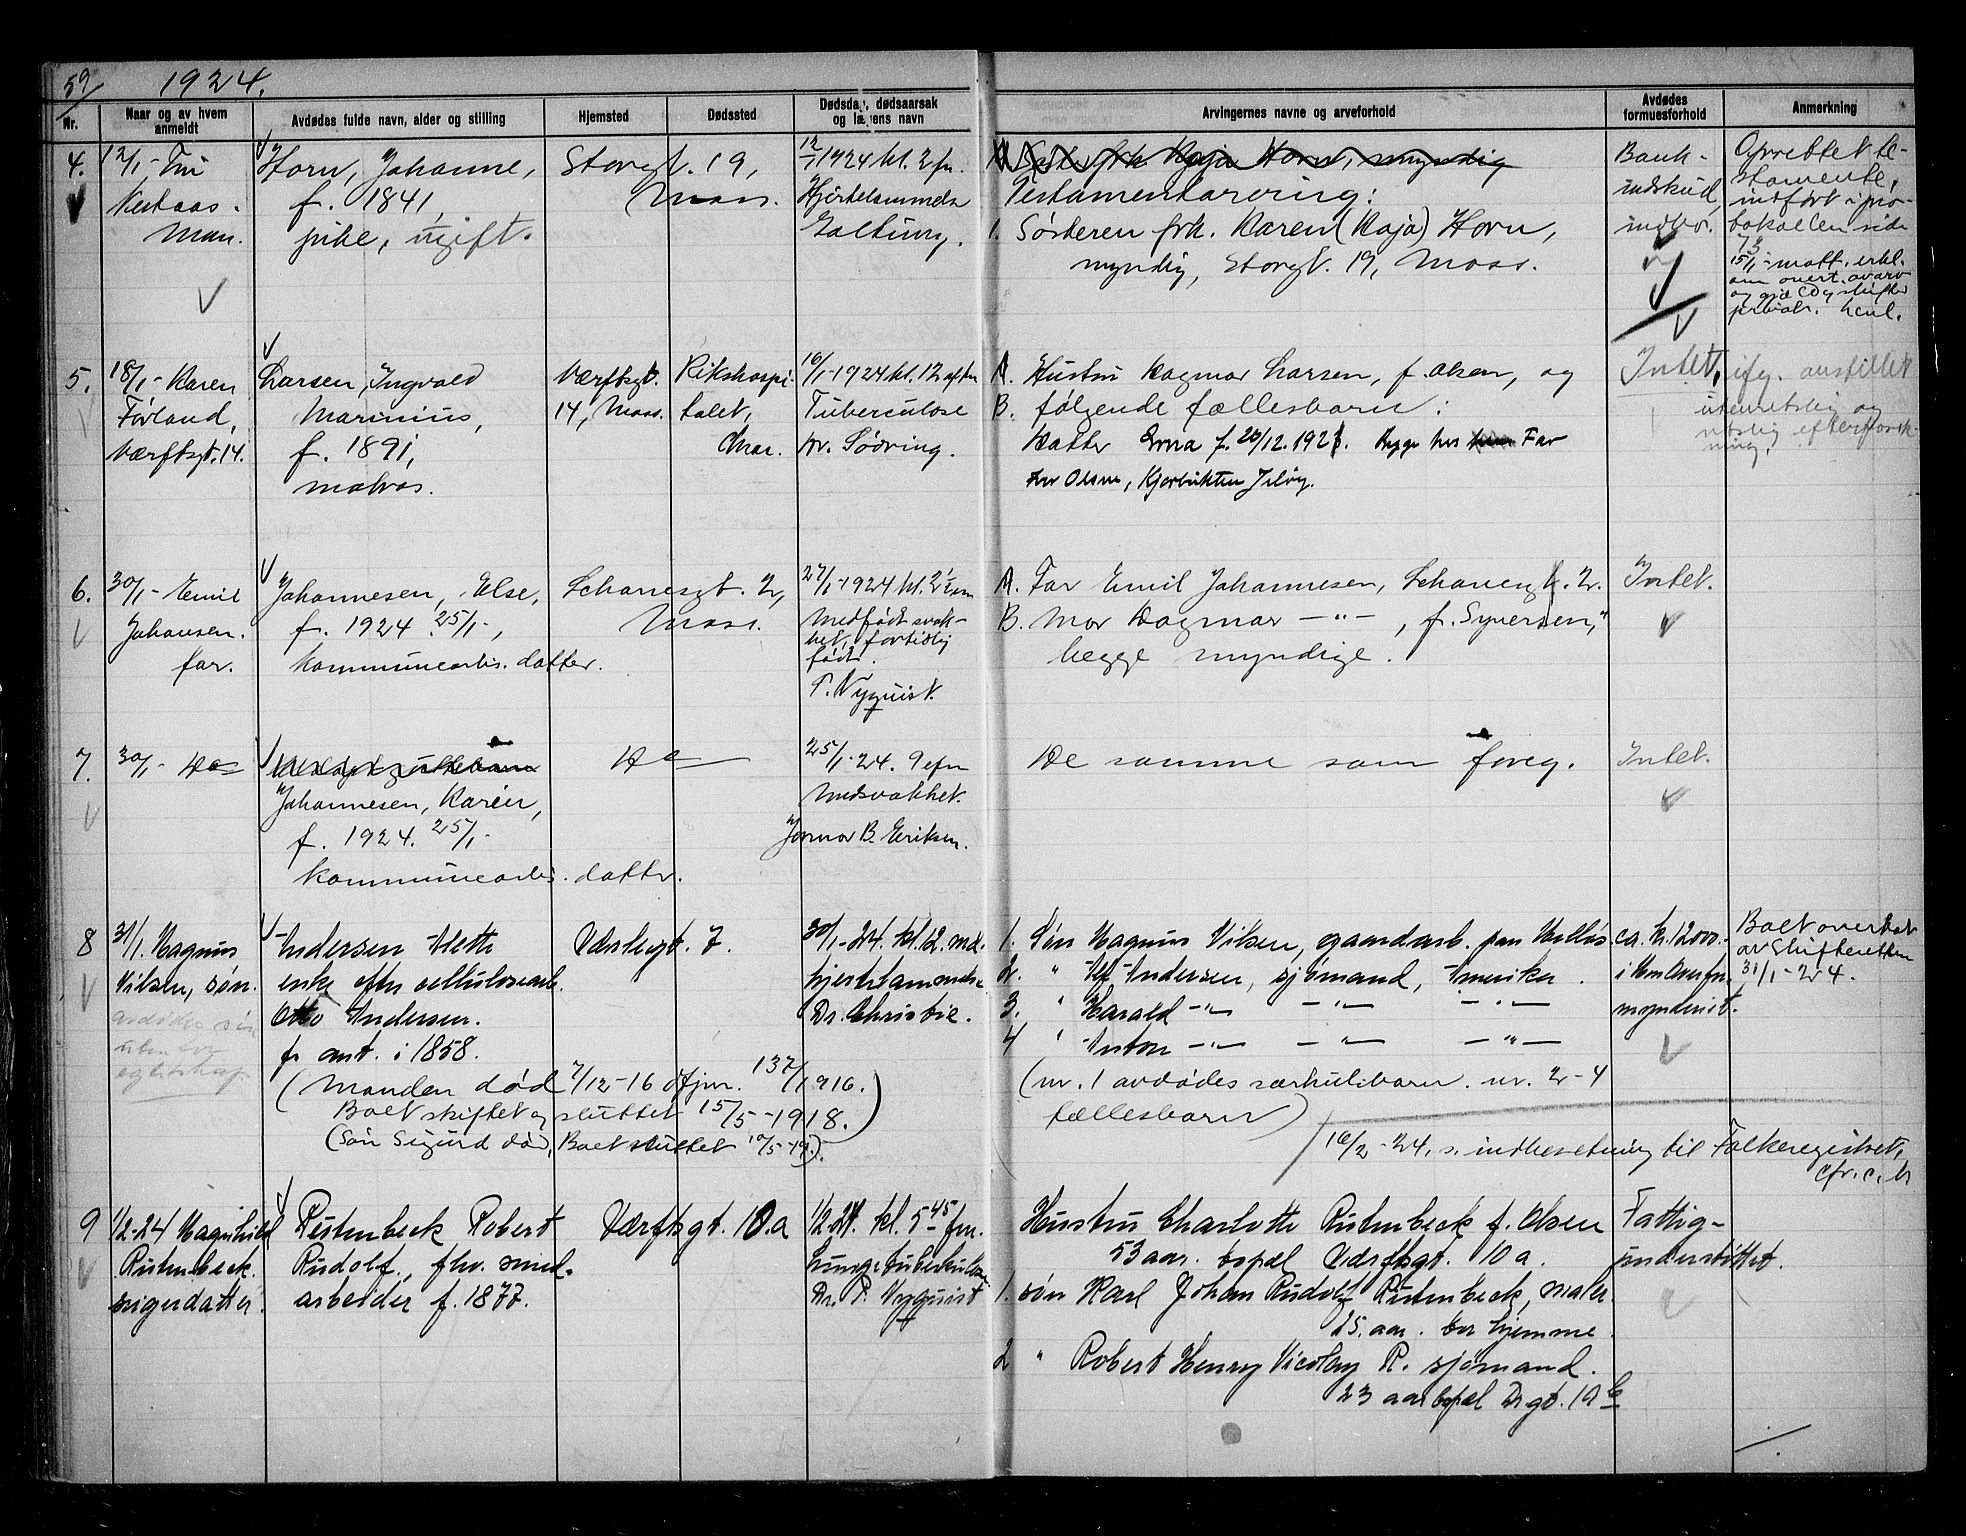 59/ 1924.
Nr.
Naar og av hvem anmeldt
Avdødes fulde navn, alder og stilling
Hjemsted
Dødssted
Dødsdag, dødsaarsak og lægens navn
Arvingernes navne og arveforhold
Avdødes formuesforhold
Anmerkning
4. 12/1 -
man.
Horn, Johanne,
f. 1841,
pike, ugift.
Storgt. 19,
Moss.
12/1 1924 kl. 2 fm.
Hjertelammelse
Galtung.
Testamentarving:
1. Søsteren frk. Karen (Kaja) Horn,
myndig, Storgt. 19, Moss.
Bank-
indskud,
indbo.
Oprettet te-
stamente,
indført i pro-
tokollen side
73
5. 18/1 - Karen
Førland,
Værftsgt. 14.
Larsen, Ingvald
Marinius,
f. 1891,
matros.
Værftsgt.
14, Moss.
Rikshospi-
talet,
Chra.
16/1 - 1924 kl. 12 aften
Tuberculose
Dr. Sødring.
A. Hustru Dagmar Larsen, f. Olsen, og
B. følgende fællesbarn:
Datter Erna f. 20/12. 1923. Begge hos Far
Olsen, Kjærbukten Jeløy.
Intet, ifg. anstillet
utenretslig og
retslig efterforsk-
ning.
6. 30/1 - Emil
Johansen.
far.
Johannesen, Else,
f. 1924 25/1 -,
kommunearb. datter.
Schonesgt. 2,
Moss.
27/1 - 1924 kl. 2
Medfødt svak-
het, fortidlig
født.
P. Nyquist.
A. Far Emil Johannesen, Schanesgt. 2.
B. Mor Dagmar - " - , f. Syversen, "
begge myndige.
Intet.
7. 30/1 - Do
Johannesen, Karin,
f. 1924. 25/1 -
kommunearb. datter.
Do
25/1 - 24. 9 efm
Medsvakhet.
Jormor B. Eriksen.
De samme som foreg.
Intet.
8 31/1. Magnus
Nilsen, søn.
Andersen Mette
enke efter cellulosearb.
Otto Andersen.
f. ant. i 1858.
(Manden død 7/12 - 16 jfr. 137/1916.
Boet skiftet og sluttet 15/5 - 1918.)
(Søn Sigurd død, Boet sluttet 10/5 - 19).
Værlegt. 7.
30/1 - 24. kl. 12. md.
hjertelammelse.
Dr. Christie.
1. Søn Magnus Nilsen, gaardarb. paa
2. " Alf Andersen, sjømand, Amerika.
3. " Harald - " - - " - - " -
4 " Anton - " - - " - - " -
(nr. 1 avdødes særkulsbarn. nr. 2 - 4
fællesbarn)
ca. kr. 12000.-
i Moss Overfor-
mynderi.
Boet overtat
av Skifteretten
31/1 - 24.
16/2 - 24, s. indberetning til Folkeregistret,
cfr. c. b
9 1/2 - 24 Magnhild
Rutenbeck.
svigerdatter.
Rutenbeck Robert
Rudolf, fhv. smed-
arbeider f. 1877.
Værftsgt. 10.a
1/2 - 24. kl. 5 45 fm.
Lungetuberkulose
Dr. P. Nyquist
Hustru Charlotte Rutenbeck f. Olsen
53 aar. bopæl Værftsgt. 10 a.
1. søn Karl Johan Rudolf Rutenbeck, maler.
25. aar. bor hjemme.
2 " Robert Henry Nicolay R. sjømand.
23 aar bopæl Vgt. 10 b
Fattig-
understøttet.